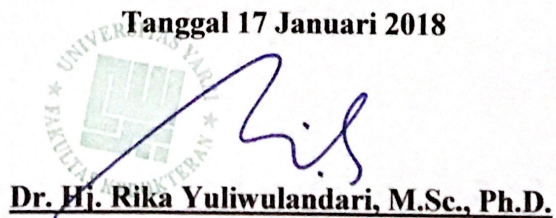 Tanggal 17 Januari 2018
UNIVERSITAS YARSI
FAKULTAS KEDOKTERAN
Dr. Hj. Rika Yuliwulandari, M.Sc., Ph.D.